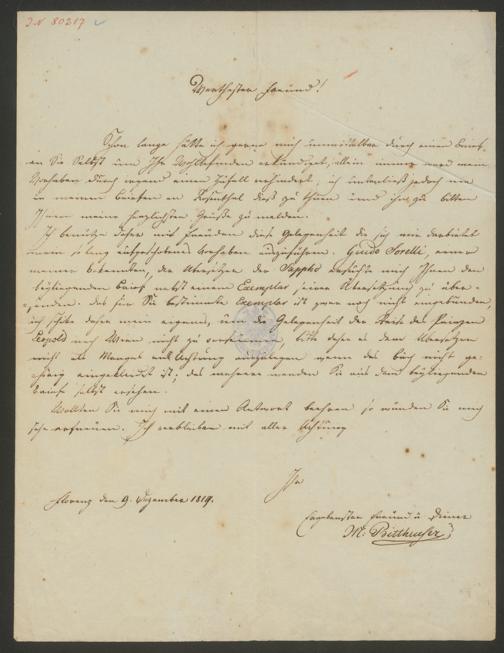 I.N 80217
Werthester Freund!
Schon lange hätte ich gerne mich unmittelbar durch einen Brief
an Sie Selbst um Ihr Wohlbefinden erkundiget, allein immer ward mein
Vorhaben durch irgend einen Zufall verhindert, ich unterließ jedoch nie
in meinen Briefen an Rosenthal dieß zu thun und ihn zu bitten
Ihnen meine herzlichsten Grüße zu melden.
Ich benütze daher mit Freuden diese Gelegenheit die sich mir darbietet
mein so lang aufgeschobenes Vorhaben auszuführen. Guido Sorelli, einer
meiner Bekannten, der Übersetzer der Sappho ersuchte mich Ihnen den
beyliegenden Brief nebst einem Exemplar seiner Übersetzung zu über-
senden. das für Sie bestimmte Exemplar ist zwar noch nicht eingebunden,
ich schicke daher mein eigenes, um die Gelegenheit der Reise des Prinzen
Leopold nach Wien nicht zu versäumen, bitte daher es dem Übersetzer
nicht als Mangel an Achtung auszulegen wenn das Buch nicht ge-
hörig eingebunden ist; das mehrere werden Sie aus dem beyliegenden
Briefe selbst ersehen.
Wollten Sie mich mit einer Antwort beehren so würden Sie mich
sehr erfreuen. Ich verbleibe mit aller Achtung
Ihr
Florenz den 9. Dezember 1819.
Ergebenster Freund u Diener
M. Bitthauser